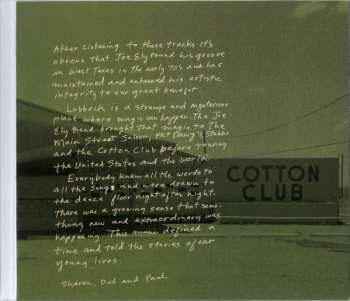 After listening to these tracks it's
obvious that Joe Ely found his groove
in West Texas in the early 70's and has
maintained and enhanced his artistic
integrity to our great benefit.
Lubbock is a strange and mysterious
place where magic can happen. The Joe
Ely Band brought that magic to The
Main Street Saloon, Fat Dawg's, Stubbs
and the Cotton Club before touring
the United States and the World.
Everybody knew all the words to
all the songs and were drawn to
the dance floor night after night.
There was a growing sense that some-
thing new and extraordinary was
happening. This music defined a
time and told the stories of our
young lives.
Sharon, Deb and Paul
COTTON
CLUB